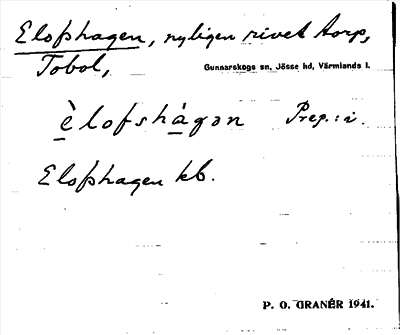 Elofshagen, nyligen rivet torp,
Tobol, Gunnarskogs sn, Jösse hd, Värmlands l.
èlofshàgən Prep.: i.
Elofshagen kb.
P. O. GRANÉR 1941.